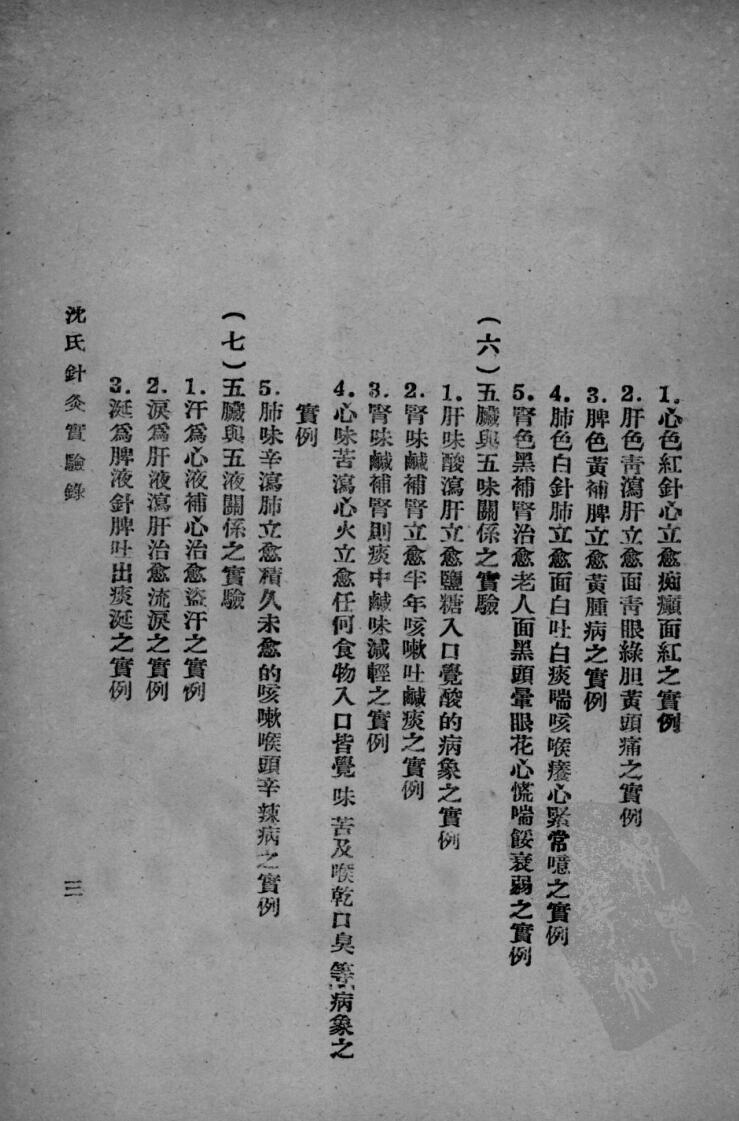 1.心色紅針心立愈痴癲面紅之實例
2.肝色靑瀉肝立愈面靑眼綠胆黃頭痛之實例
3.脾色黃補脾立愈黃腫病之實例
4.肺色白針肺立愈面白吐白痰喘咳喉癢心緊常噫之實例
5.腎色黑補腎治愈老人面黑頭暈眼花心慌喘餒衰弱之實例
(六)五臟與五味關係之實驗
1.肝味酸瀉肝立愈鹽糖入口覺酸的病象之實例
2.腎味鹹補腎立愈半年咳嗽吐鹹痰之實例
3.腎味鹹補腎則痰中鹹味減輕之實例
4.心味苦瀉心火立愈任何食物入口皆覺味苦及喉乾口臭等病象之
實例
5.肺味辛瀉肺立愈積久未愈的咳嗽喉頭辛辣病之實例
(七)五臟與五液關係之實驗
1.汗爲心液補心治愈盜汗之實例
2.淚爲肝液瀉肝治愈流淚之實例
3.涎爲脾液針脾吐出痰涎之實例
沈氏針灸實驗錄
三